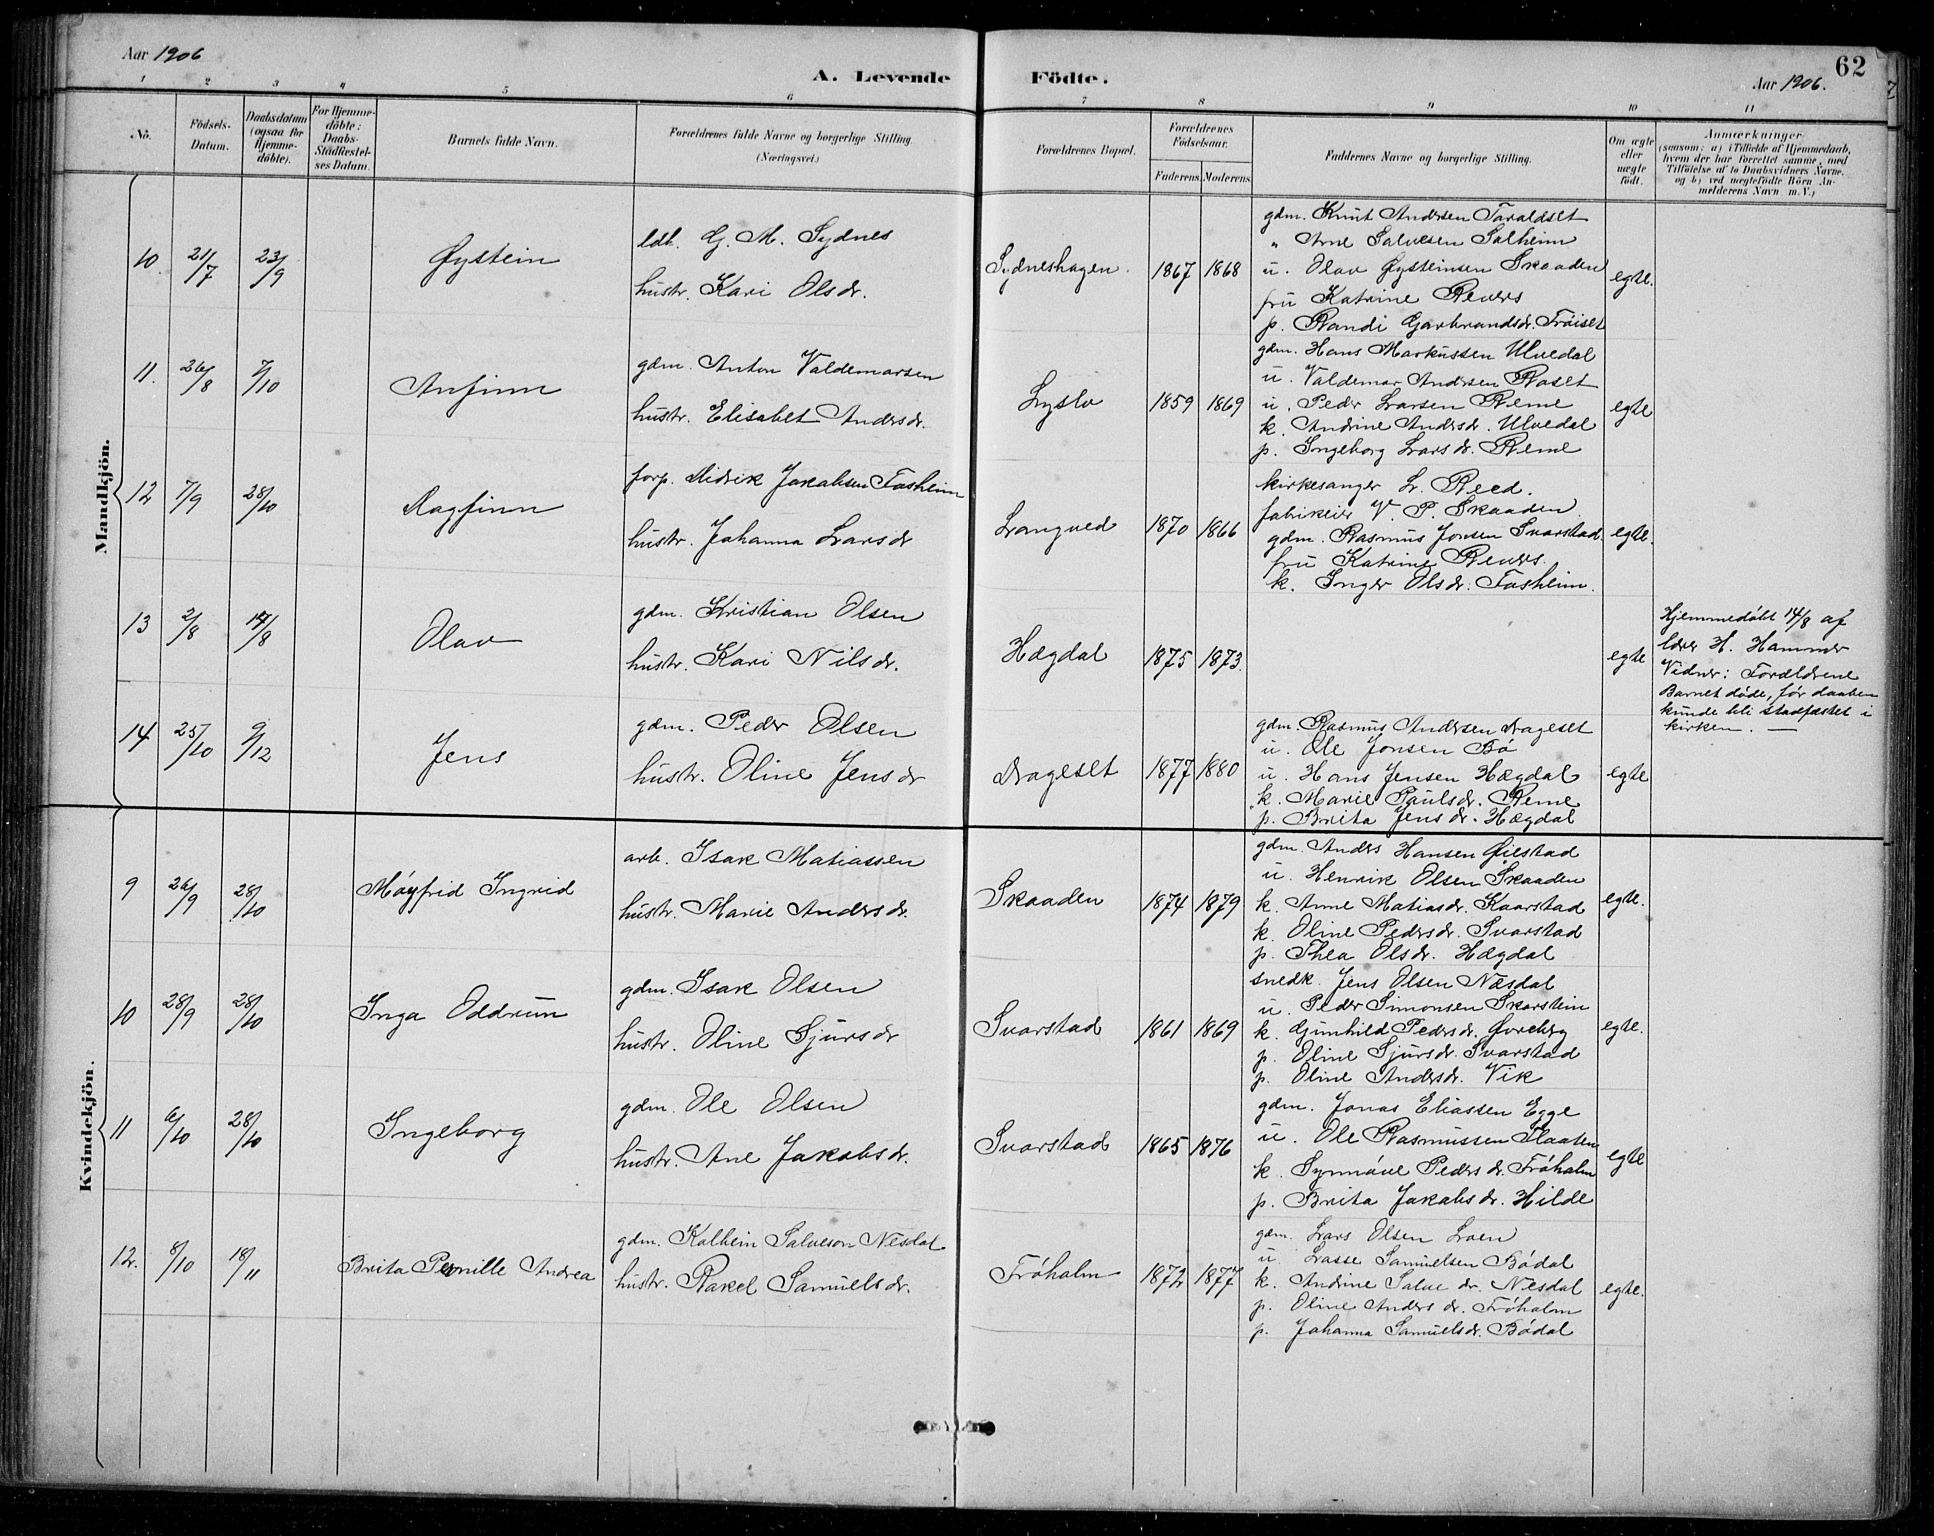 Aar 1906
A. Levende Födte.
Aar 1906.
62
1 2 3 4 5 6 7 8 9 10 11
No.
Födsels-Datum.
Daabsdatum (ogsaa for Hjemmedöbte).
For Hjemmedöbte: Daabs-Stadfæstelses Datum.
Barnets fulde Navn.
Forældrenes fulde Navne og borgerlige Stilling. (Næringsvei.)
Forældrenes Bopæl.
Forældrenes Födselsaar.
Faderens. Moderens.
Faddernes Navne og borgerlige Stilling.
Om ægte eller uægte födt.
Anmærkninger
(saasom: a) i Tilfælde af Hjemmedaab, hvem der har forrettet samme, med Tilföielse af to Daabsvidners Navne, og b) ved uægtefödte Börn Anmelderens Navn m. V.)
Mandkjön.
10. 21/7 23/9 Øystein
ldh. G. M. Sydnes
hustr. Kari Olsdr.
Sydneshagen. 1867 1868
gdm. Knut Andersen Taraldset
" Arne Salvesen Solheim
u. Olav Øysteinsen Skaaden
fru Katrine Reuers
p. Randi Garbrandsdr. Frøiset
egte.
11. 26/8 7/10 Anfinn
gdm. Anton Valdemarsen
hustr. Elisabet Andersdr.
Lyslo 1859 1869
gdm. Hans Markussen Ulvedal
u. Valdemar Andersen Roset
u. Peder Larsen Reme
k. Andrine Andersdr. Ulvedal
p. Ingeborg Larsdr. Reme
egte
12 7/9 28/10 Ragfinn
forp. Didrik Jakobsen Fosheim
hustr. Johanna Larsdr
Langved 1870 1866
kirkesanger L. Reed.
fabrikeier V. P. Skaaden
gdm. Rasmus Jonsen Svarstad
fru Katrine Reuers.
k. Inger Olsdr. Fosheim.
egte.
13 2/8 14/8 Olav
gdm. Kristian Olsen
hustr. Kari Nilsdr.
Hægdal 1875 1873.
egte
Hjemmedøbt 14/8 af
lærer H. Hammer
Vidner: Forældrene
Barnet døde, før daaben
kunde bli stadfæstet i
kirken. —
14 25/10 9/12 Jens
gdm. Peder Olsen
hustr. Oline Jensdr
Drageset 1877 1880
gdm. Rasmus Andersen Drageset
u. Ole Jonsen Bø
u. Hans Jensen Hægdal
k. Marie Paulsdr. Reme
p. Brita Jensdr. Hægdal
egte
Kvindekjön.
9 26/9 28/10 Møyfrid Ingrid
arb. Isak Matiassen
hustr. Marie Andersdr.
Skaaden 1874 1879
gdm. Anders Hansen Øiestad
u. Henrik Olsen Skaaden
k. Anne Matiasdr. Kaarstad
k. Oline Pedersdr. Svarstad
p. Thea Olsdr. Hægdal
egte.
10 28/9 28/10 Inga Oddrun
gdm. Isak Olsen
hustr. Oline Sjursdr
Svarstad 1861 1869
snedk. Jens Olsen Næsdal
u. Peder Simonsen Skarstein
k. Gunhild Pedersdr. Øvreberg
p. Oline Sjursdr. Svarstad
p. Oline Andersdr. Vik
egte.
11 6/10 28/10 Ingeborg
gdm. Ole Olsen
hustr. Ane Jakobsdr.
Svarstad 1865 1876
gdm. Jonas Eliassen Egge
u. Ole Rasmussen Flaaten
k. Synnøve Pedersdr. Frøholm
p. Brita Jakobsdr. Hilde
egte
12. 8/10 18/11 Brita Pernille Andrea
gdm. Kolbein Salveson Nesdal
hustr. Rakel Samuelsdr.
Frøholm 1872 1877
gdm. Lars Olsen Loen
u. Lasse Samuelsen Bødal
k. Andrine Salvedr. Nesdal
p. Oline Andersdr. Frøholm
p. Johanna Samuelsdr. Bødal
egte.